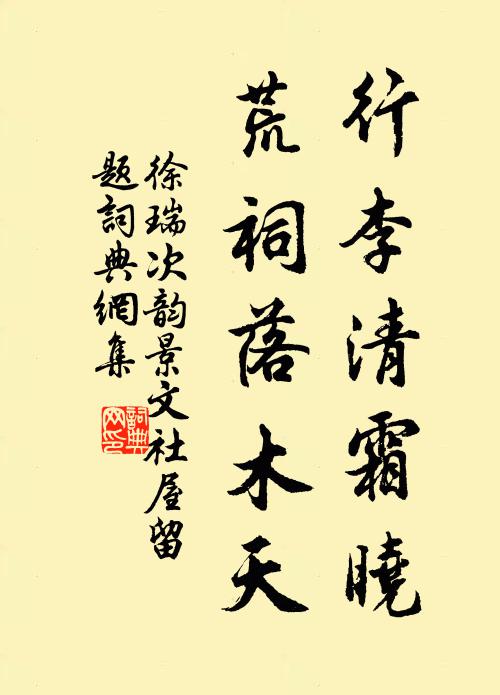 行李清霜曉
荒祠落木天
徐瑞次韵景文社屋留
題詞典網集
詞典
网印